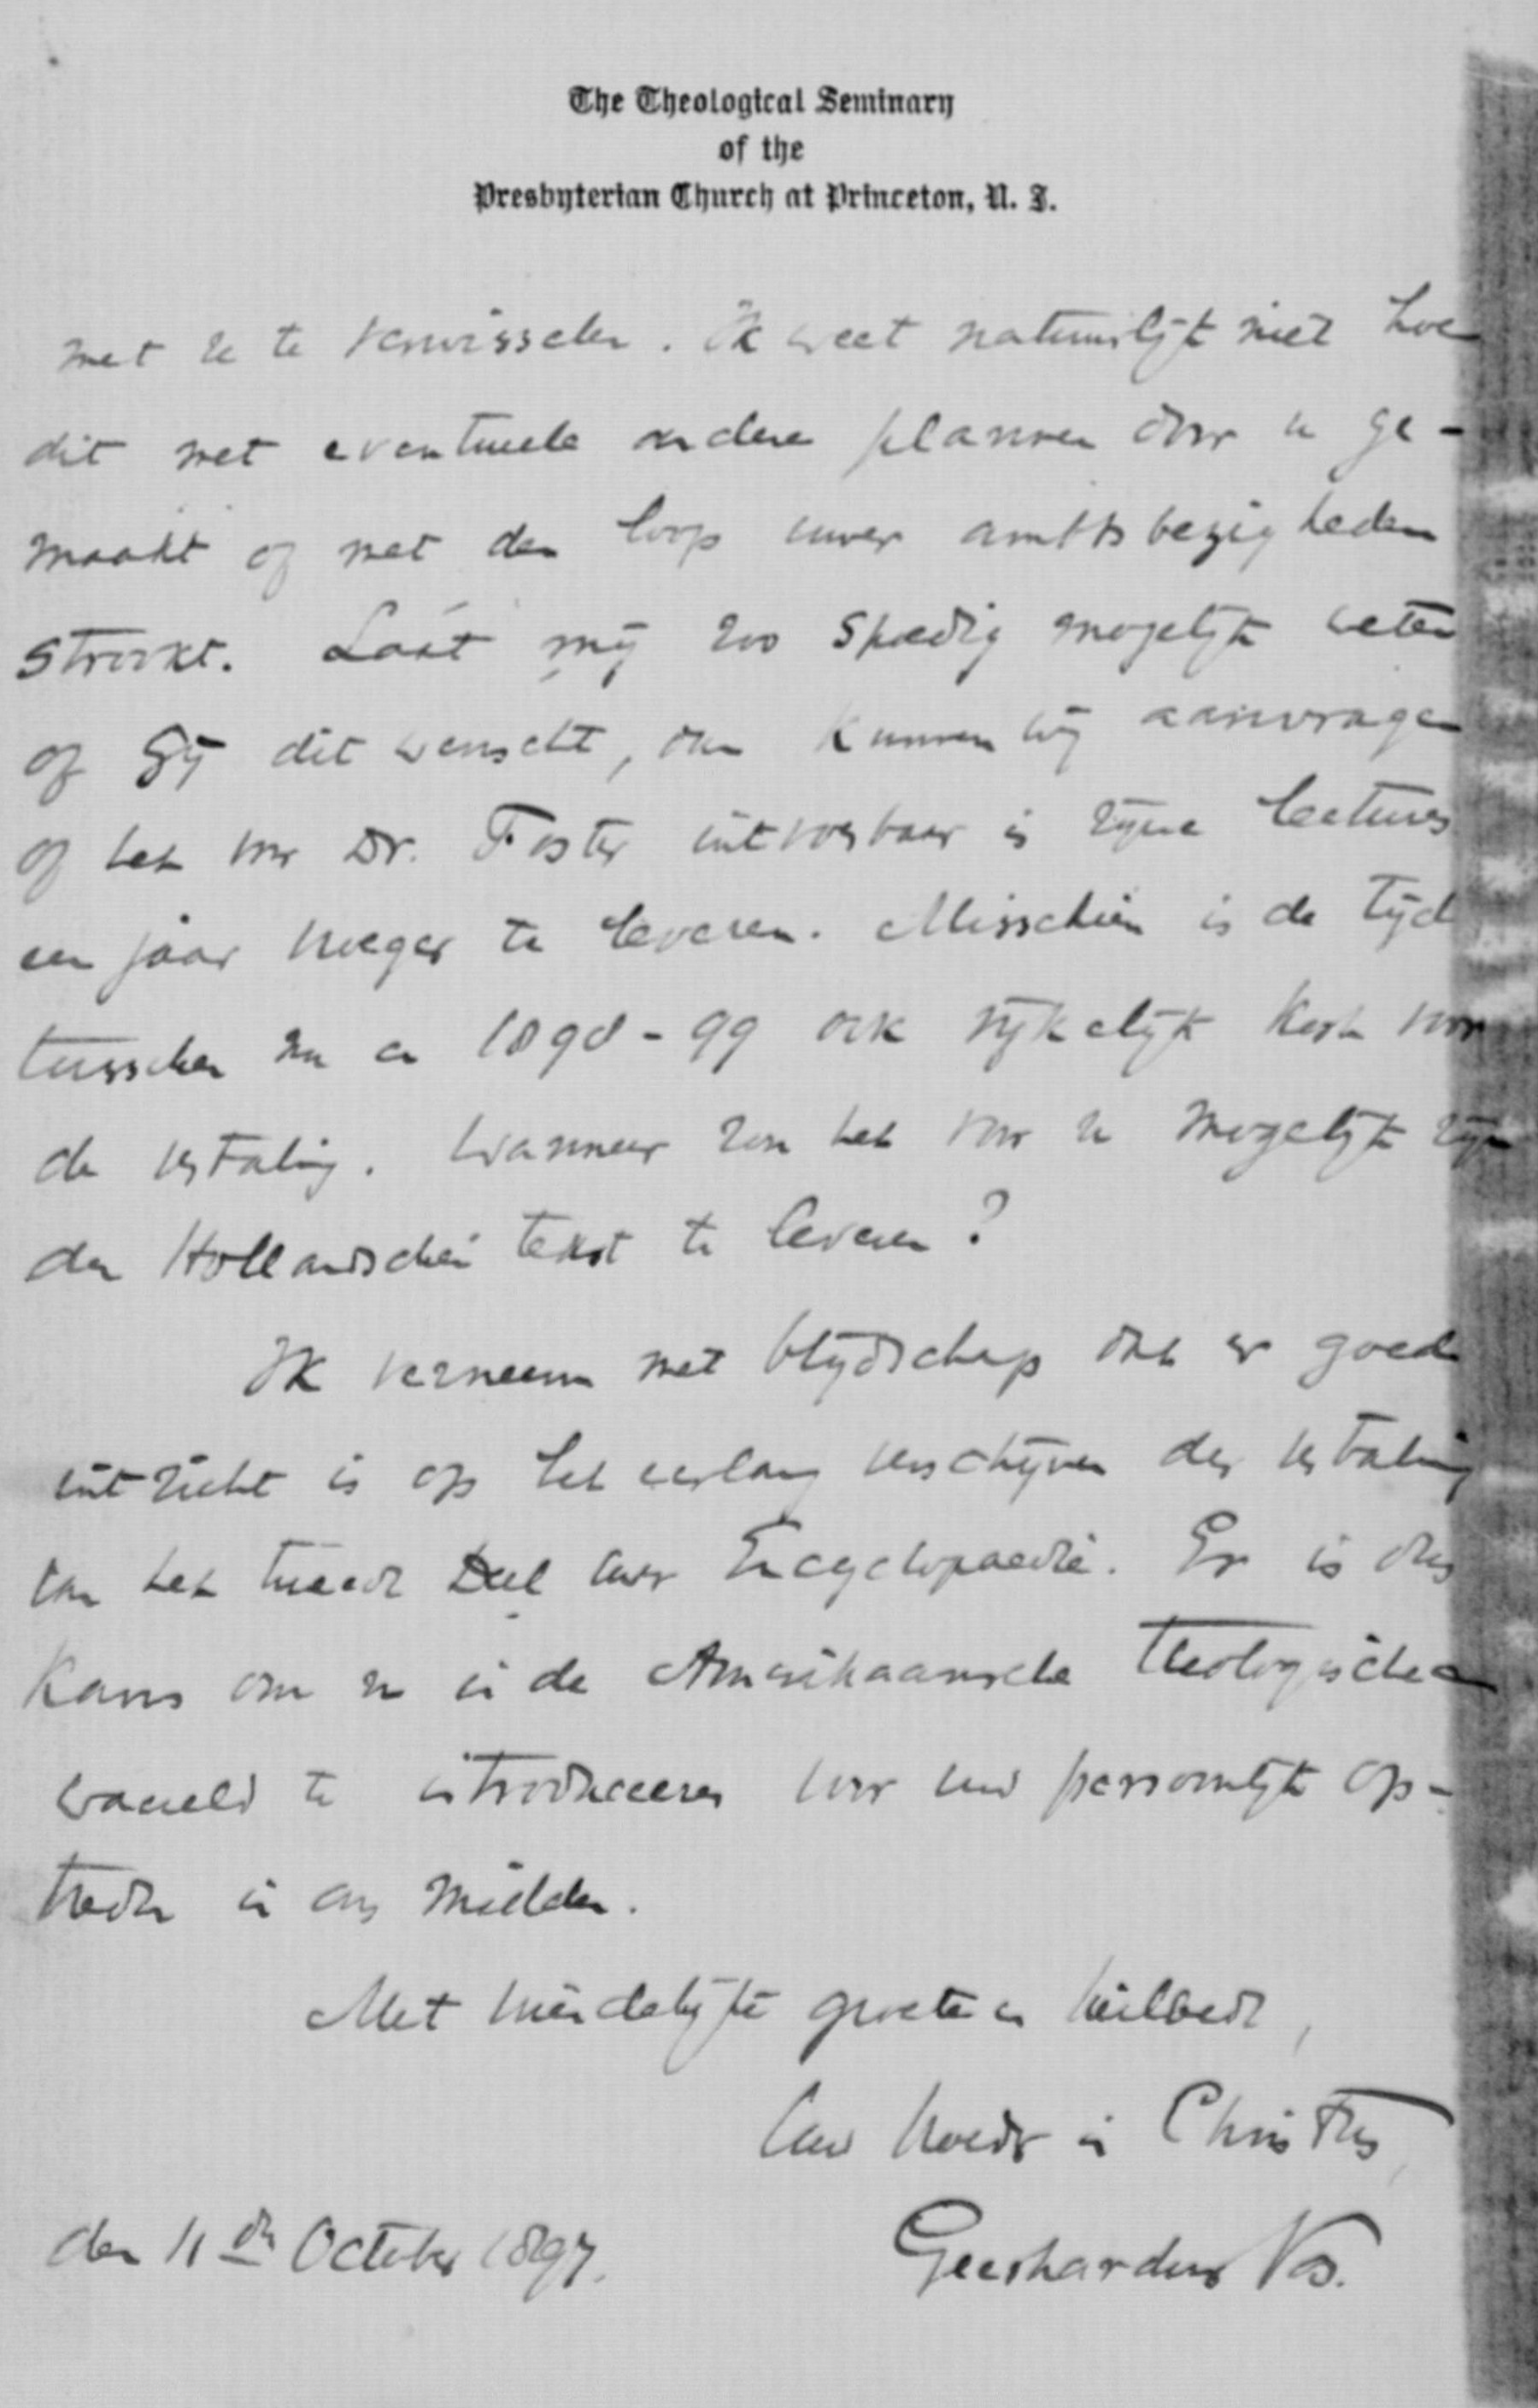 The Theological Seminary
of the
Presbyterian Church at Princeton, N. J.
met u te verwisselen. Ik weet natuurlijk niet hoe
dit met eventueele andere plannen door u ge-
maakt of met den loop uwer ambtsbezigheden
strookt. Laat mij zoo spoedig mogelijk weten
of gij dit wenscht, dan kunnen wij aanvragen
of het voor Dr. Foster uitvoerbaar is zijne lectures
een jaar vroeger te leveren. Misschien is de tijd
tusschen nu en 1898-99 ook rijkelijk kort voor
de vertaling. Wanneer zou het voor u mogelijk zijn
den Hollandschen tekst te leveren?
Ik verneem met blijdschap dat er goed
uitzicht is op het eerlang verschijnen der vertaling
van het tweede Deel uwer Encyclopaedie. Er is dus
kans om u in de Amerikaansche theologische
waereld te introduceeren voor uw persoonlijk op-
treden in ons midden.
Met vriendelijke groete en heilbede,
Uw broeder in Christus,
den 11den October 1897.
Geerhardus Vos.